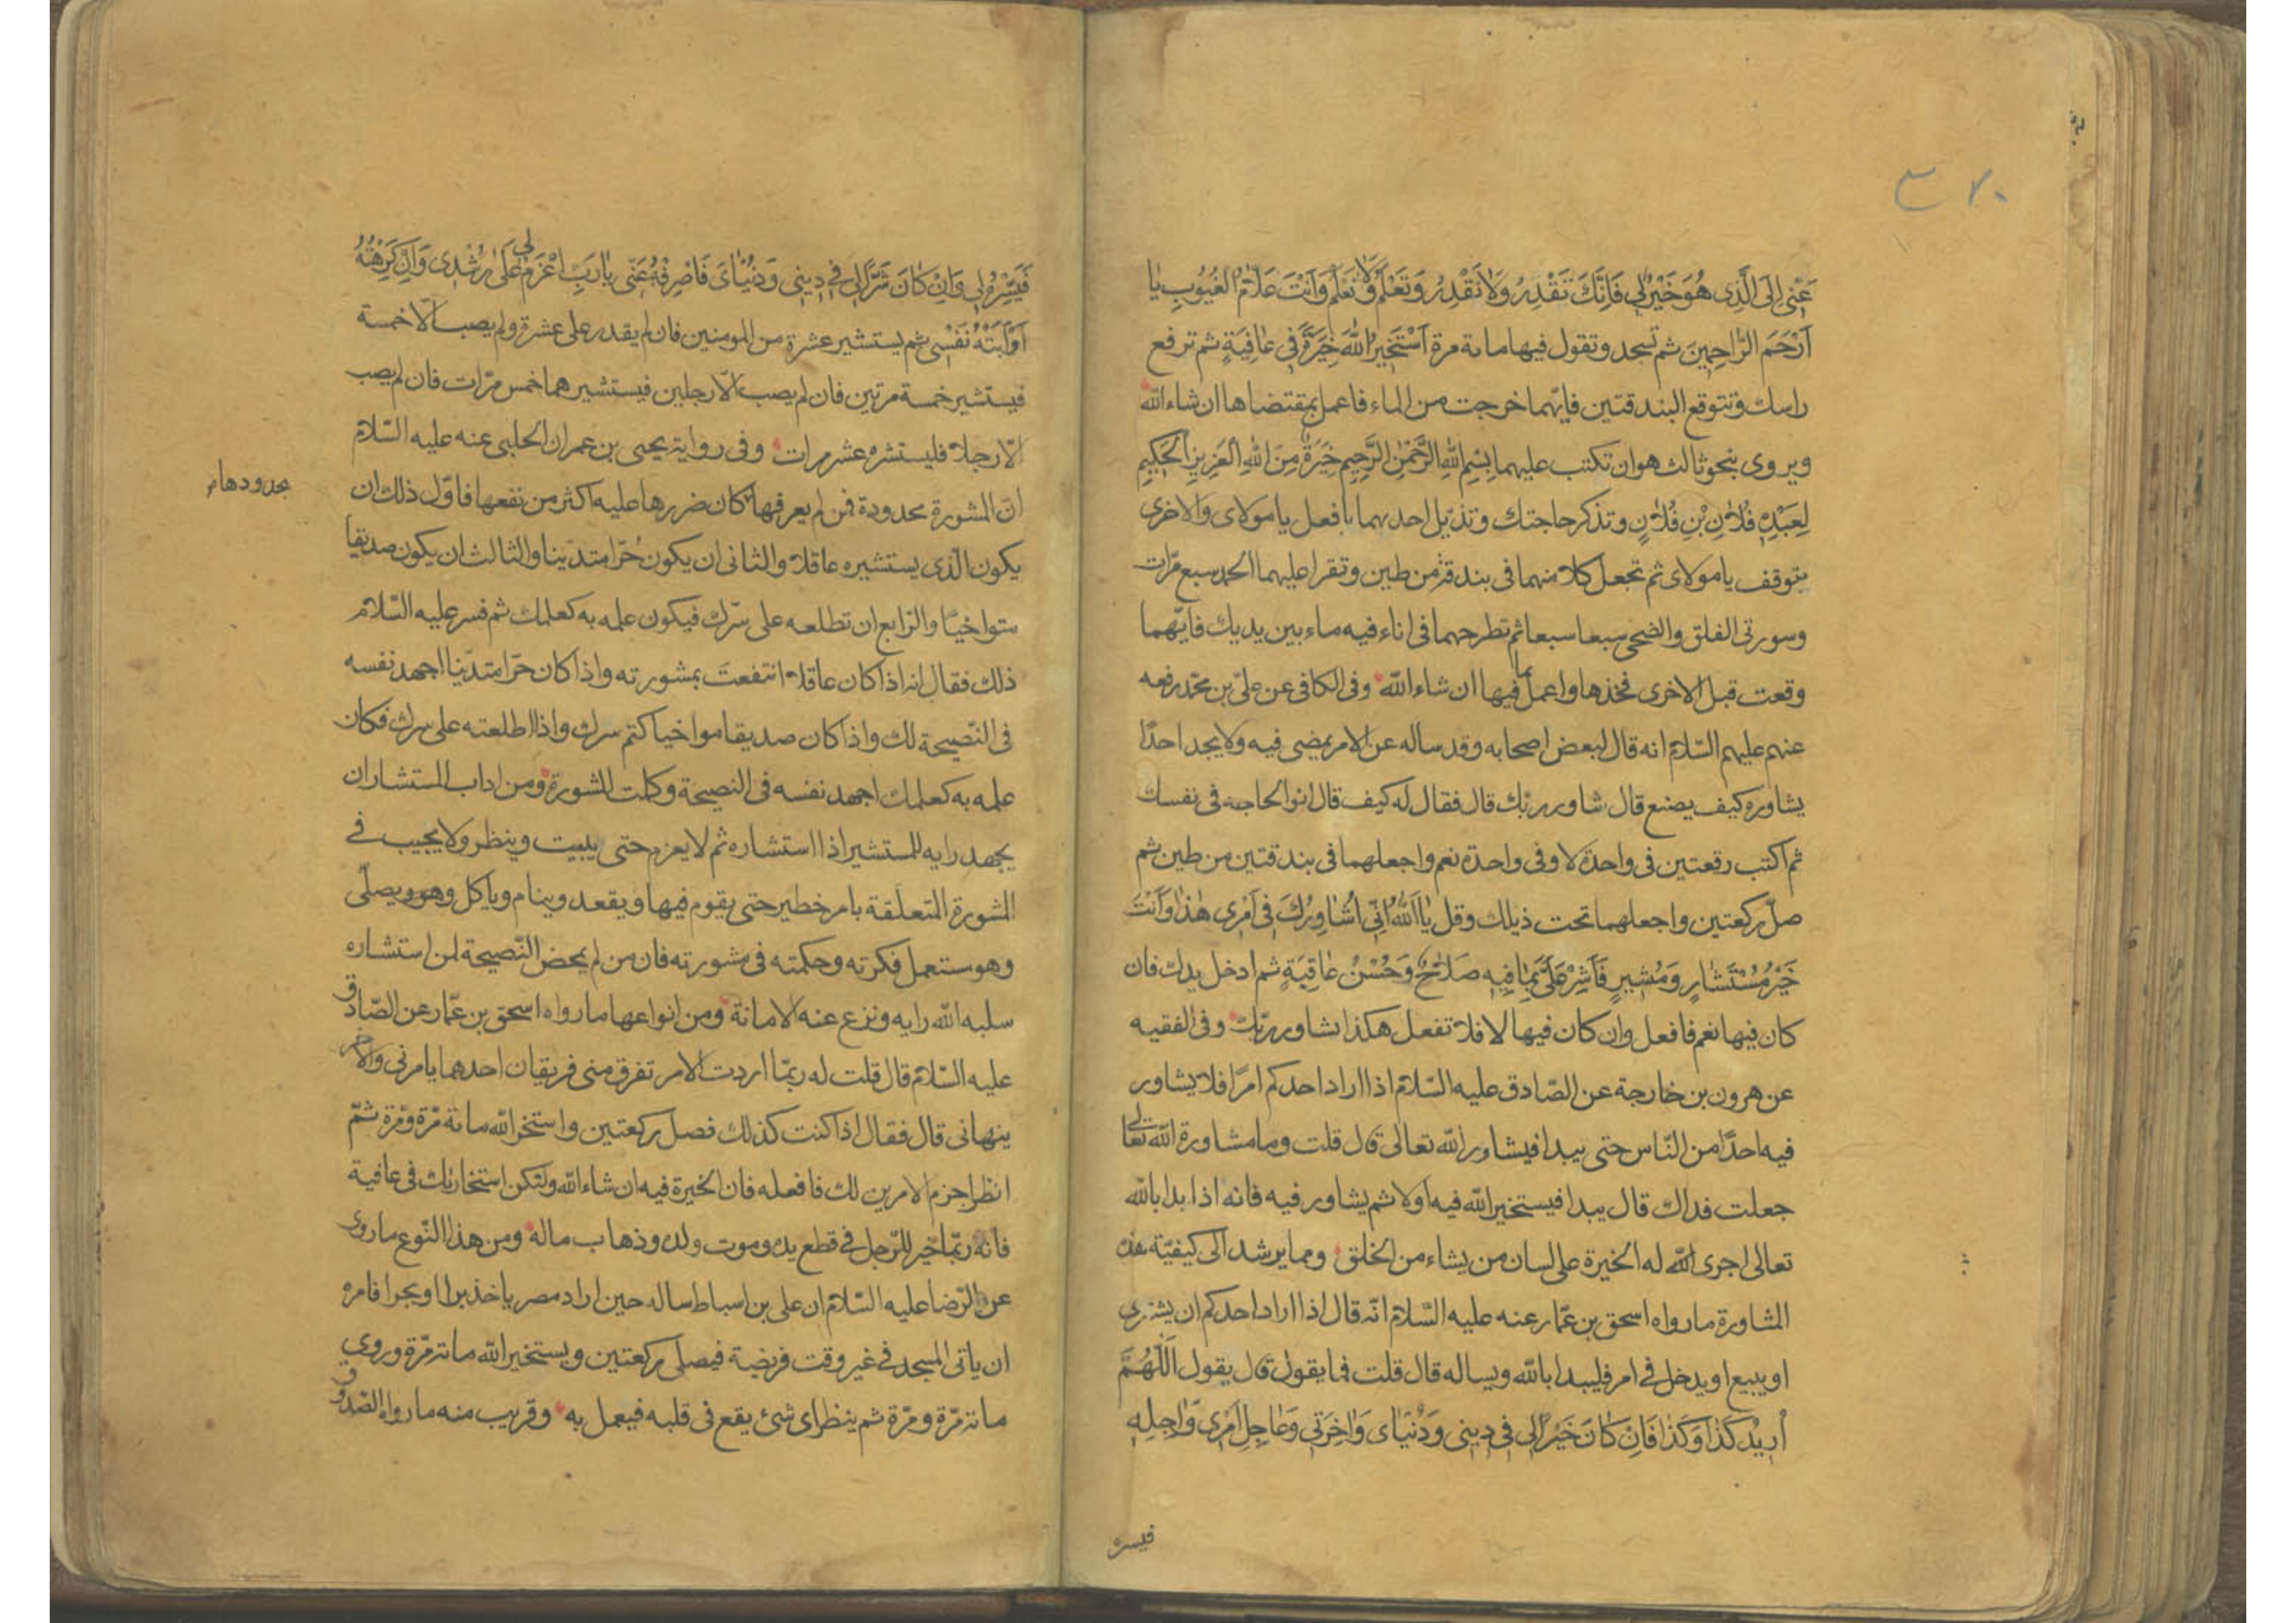 ٣٧٠
عَنّى اِلَى الَّذِى هُوَ خَيْرٌ لِى فَاِنَّكَ تَقْدِرُ وَلَا نَقْدِرُ وَتَعْلَمُ وَلَا نَعْلَمُ وَاَنْتَ عَلَّامُ الغُيُوبِ يا
اَرْحَمَ الرَّاحِمِينَ ثم تسجد وتقول فيها ماىة مرة اَسْتَخِيرُ اللّٰهَ خِيَرَةً فِى عَافِيَةٍ ثم ترفع
راسك وتتوقع البندقتين فايّهما خرجت من الماء فاعمل بمقتضاها ان شاء اللّه
ويروى بنحو ثالث هو ان تكتب عليهما بِسْمِ اللّٰهِ الرَّحْمٰنِ الرَّحِيمِ خِيَرَةٌ مِنَ اللّٰهِ العَزِيزِ الحَكِيمِ
لِعَبْدِهِ فُلَانِ بْنِ فُلَانٍ وتذكر حاجتك وتذيّل احديهما بافعل يا مولاى والاخرى
بتوقف يا مولاى ثم تجعل كلا منهما فى بندقة من طين وتقرا عليهما الحمد سبع مرّات
وسورتى الفلق والضحى سبعا سبعا ثم تطرحهما فى اناء فيه ماء بين يديك فايّهما
وقعت قبل الاخرى فخذها واعمل بما فيها ان شاء اللّه وفى الكافى عن علىّ بن محمّد رفعه
عنهم عليهم السّلام انه قال لبعض اصحابه وقد ساله عن الامر يمضى فيه ولا يجد احدًا
يشاوره كيف يصنع قال شاور ربّك قال فقال له كيف قال انو الحاجه فى نفسك
ثم اكتب رقعتين فى واحدة لا وفى واحدة نعم واجعلهما فى بندقتين من طين ثم
صلّ ركعتين واجعلهما تحت ذيلك وقل يَا اَللّٰهُ اِنّى اُشَاوِرُكَ فِى اَمْرِى هٰذَا وَاَنْتَ
خَيْرُ مُسْتَشَارٍ وَمُشِيرٍ فَاَشِرْ عَلَىَّ بِمَا فِيهِ صَلَاحٌ وَحُسْنُ عَاقِبَةٍ ثم ادخل يدك فان
كان فيها نعم فافعل وان كان فيها لا فلا تفعل هكذا تشاور ربّك وفى الفقيه
عن هرون بن خارجة عن الصّادق عليه السّلام اذا اراد احدكم امرًا فلا يشاور
فيه احدًا من النّاس حتى يبدا فيشاور اللّه تعالى قال قلت وما مشاورة اللّه تعالى
جعلت فداك قال يبدا فيستخير اللّه فيه اولا ثم يشاور فيه فانه اذا بدا باللّه
تعالى اجرى اللّه له الخيرة على لسان من يشاء من الخلق ومما يرشد الى كيفيّة هذه
المشاورة ما رواه اسحق بن عمّار عنه عليه السّلام انّه قال اذا اراد احدكم ان يشترى
او يبيع او يدخل فى امر فليبدا باللّه ويساله قال قلت فما يقول قال يقول اَللّٰهُمَّ
اُرِيدُ كَذَا وَكَذَا فَاِنْ كَانَ خَيْرًا لِى فِى دِينِى وَدُنْيَاىَ وَاخِرَتِى وَعَاجِلِ اَمْرِى وَاجِلِهِ
فيسره
فَيَسِّرْهُ لِى وَاِنْ كَانَ شَرًّا لِى فِى دِينِى وَدُنْيَاىَ فَاصْرِفْهُ عَنّى يَا رَبِّ اعْزِمْ لِى عَلٰى رُشْدِى وَاِنْ كَرِهَتْهُ
اَوْ اَبَتْهُ نَفْسِى ثم يستشير عشرة من المومنين فان لم يقدر على عشرة ولم يصب الّا خمسة
فيستشير خمسة مرتين فان لم يصب الّا رجلين فيستشيرهما خمس مرّات فان لم يصب
الّا رجلا فليستشره عشر مرات وفى رواية يحيى بن عمران الحلبى عنه عليه السّلام
انّ المشورة محدودة فمن لم يعرفها كان ضررها عليه اكثر من نفعها فاوّل ذلك ان
بحدودها م
يكون الّذى يستشيره عاقلا والثانى ان يكون حُرّا متديّنا والثالث ان يكون صديقا
متواخيًا والرّابع ان تطلعه على سرّك فيكون علمه به كعلمك ثم فسر عليه السّلام
ذلك فقال انه اذا كان عاقلا انتفعتَ بمشورته واذا كان حرّا متديّنا اجهد نفسه
فى النّصيحة لك واذا كان صديقا مواخيا كتم سرك واذا اطلعته على سرك فكان
علمه به كعلمك اجهد نفسه فى النصيحة وكملت المشورة ومن اداب المستشار ان
يجهد رايه للمستشير اذا استشاره ثم لا يعزم حتى يبيت وينظر ولا يجيب فى
المشورة المتعلّقة بامر خطير حتى يقوم فيها ويقعد وينام وياكل وهو ويصلّى
وهو مستعمل فكرته وحكمته فى مشورته فان من لم يمحض النّصيحة لمن استشاره
سلبه اللّه رايه ونزع عنه الامانة ومن انواعها ما رواه اسحق بن عمّار عن الصّادق
عليه السّلام قال قلت له ربمّا اردت الامر تفرق منى فريقان احدهما يامرنى والاخر
ينهانى قال فقال اذا كنت كذلك فصل ركعتين واستخر اللّه مائة مرّة ومرّة ثمّ
انظر اجزم الامرين لك فافعله فان الخيرة فيه ان شاء اللّه ولتكن استخارتك فى عافية
فانه ربّما خير للرّجل فى قطع يده وموت ولده وذهاب ماله ومن هذا النّوع ما روى
عن الرّضا عليه السّلام ان على بن اسباط ساله حين اراد مصر ياخذ برا او بحرا فامره
ان ياتى المسجد فى غير وقت فريضة فيصلى ركعتين ويستخير اللّه مائة مرّة وروى
مائة مرّة ومرّة ثم ينظر اى شئ يقع فى قلبه فيعمل به وقريب منه ما رواه الصّدوق